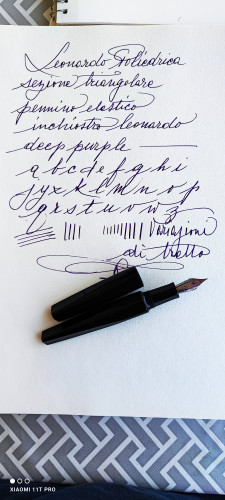 Leonardo Poliedrica
sezione triangolare
pennino elastico
inchiostro leonardo
deep purple
a b c d e f g h i
j y x k l m n o p
q r s t u v w z
Variazioni
di tratto
XIAOMI 11T PRO